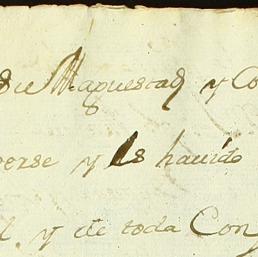 su Mapuestad y Co
verse y ls havido
l y de toda Con